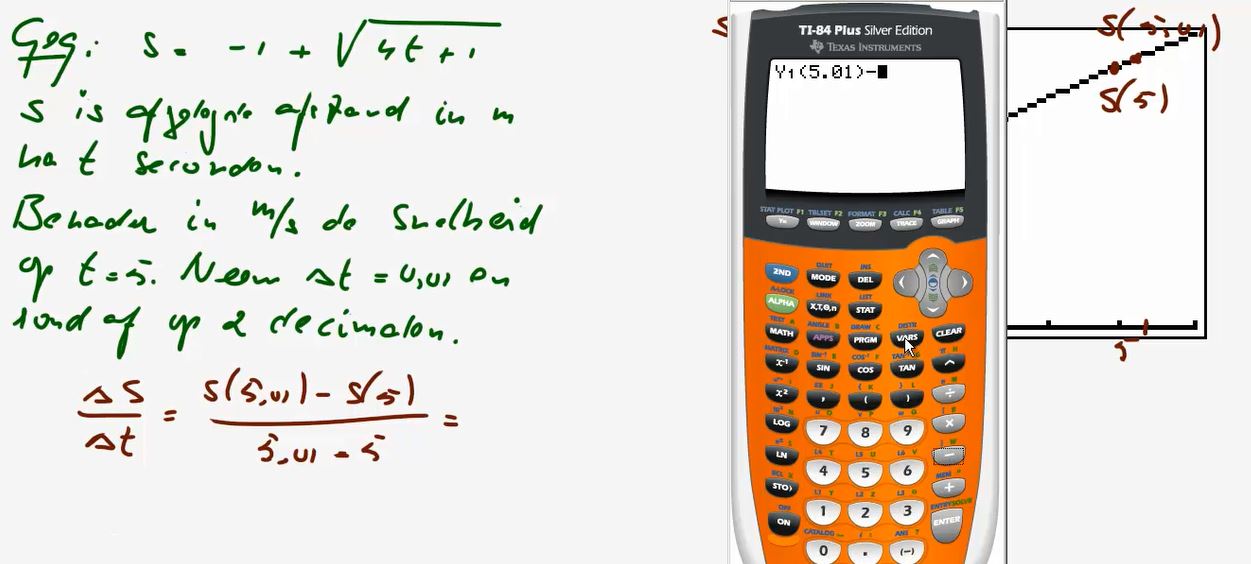 Geg: s = -1 + √4t+1
s is afgelegde afstand in m
na t seconden.
Benader in m/s de snelheid
op t=5. Neem Δt = 0,01 en
rond af op 2 decimalen.
ΔS/Δt = S(5,01) - S(5) / 5,01 - 5 =
S
S(5,01)
S(5)
5
TI-84 Plus Silver Edition
TEXAS INSTRUMENTS
Y₁(5.01)-
STAT PLOT F1 TBLSET F2 FORMAT F3 CALC F4 TABLE F5
Y= WINDOW ZOOM TRACE GRAPH
QUIT INS
2ND MODE DEL
A-LOCK LINK LIST
ALPHA X,T,Θ,n STAT
TEST A ANGLE B DRAW C DISTR
MATH APPS PRGM VARS CLEAR
MATRIX D SIN⁻¹ E COS⁻¹ F TAN⁻¹ G π H
x⁻¹ SIN COS TAN ^
√ I EE J { K } L e M
x² , ( ) ÷
10ˣ N u O v P w Q [ R
LOG 7 8 9 ×
eˣ S L4 T L5 U L6 V ] W
LN 4 5 6 −
RCL X L1 Y L2 Z L3 θ MEM "
STO› 1 2 3 +
OFF CATALOG i : ANS ? ENTRY SOLVE
ON 0 . (-) ENTER